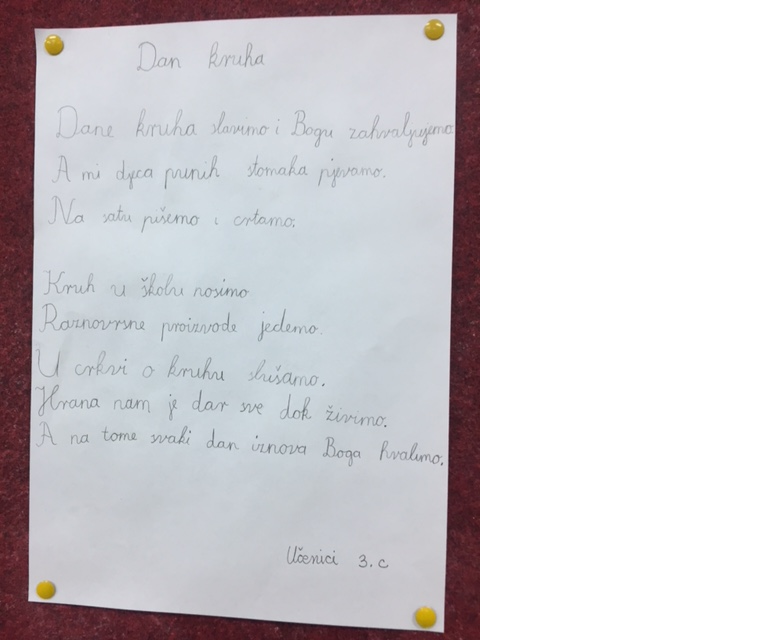 Dan kruha
Dane kruha slavimo i Bogu zahvaljujemo
A mi djeca punih stomaka pjevamo.
Na satu pišemo i crtamo.
Kruh u školu nosimo
Raznovrsne proizvode jedemo.
U crkvi o kruhu slušamo.
Hrana nam je dar sve dok živimo.
A na tome svaki dan iznova Boga hvalimo.
Učenici 3. c